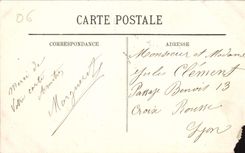 06
CARTE POSTALE
CORRESPONDANCE
ADRESSE
Merci de
votre carte
Amitiés
Marguerite
Monsieur et Madame
Jules Clément
Passage Benoit 13
Croix Rousse
Lyon